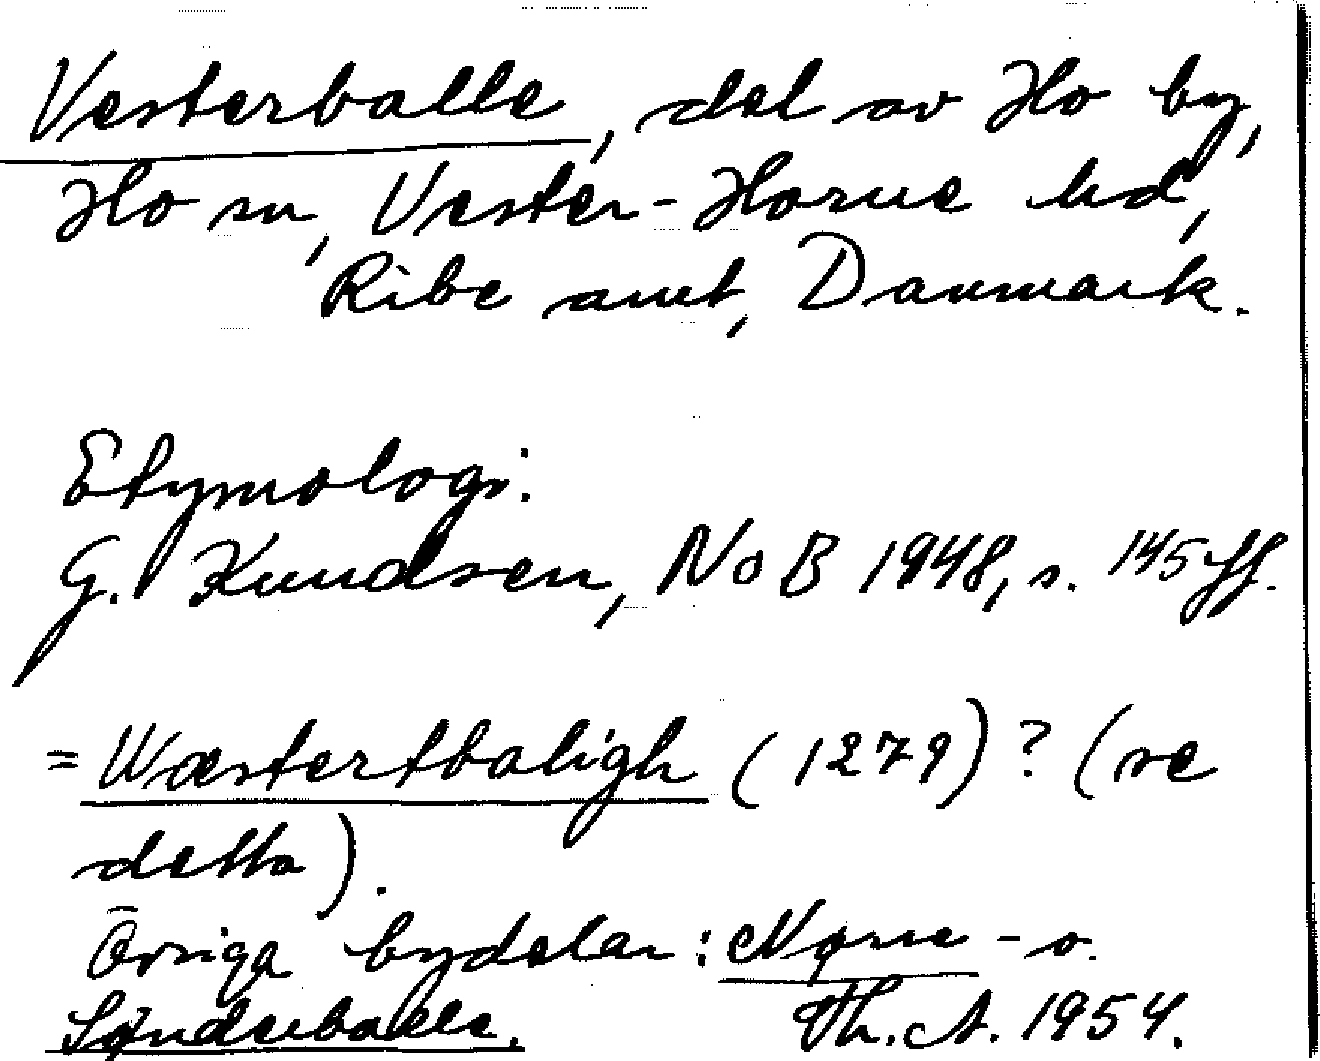 Vesterballe, del av Ho by,
Ho sn, Vester-Horne hd,
Ribe amt, Danmark.
Etymologi:
G. Knudsen, NoB 1948, s. 145 ff.
= Wæstertbaligh (1279)? (se
detta).
Övriga bydelar: Nørre- o.
Sønderballe. Th. A. 1954.